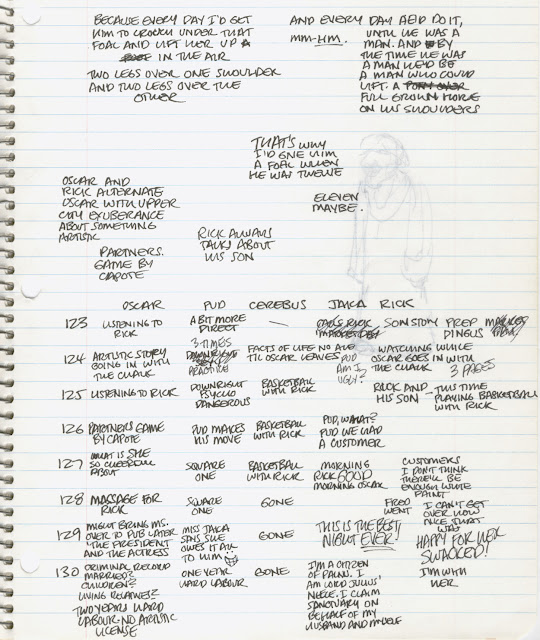 BECAUSE EVERY DAY I'D GET
HIM TO CROUCH UNDER THAT
FOAL AND LIFT HER UP
IN THE AIR
TWO LEGS OVER ONE SHOULDER
AND TWO LEGS OVER THE
OTHER
AND EVERY DAY HE'D DO IT,
MM-HM. UNTIL HE WAS A
MAN. AND BY
THE TIME HE WAS
A MAN HE'D BE
A MAN WHO COULD
LIFT A
FULL GROWN HORSE
ON HIS SHOULDERS
THAT'S WHY
I'D GIVE HIM
A FOAL WHEN
HE WAS TWELVE
ELEVEN
MAYBE.
OSCAR AND
RICK ALTERNATE
OSCAR WITH UPPER
CITY EXUBERANCE
ABOUT SOMETHING
ARTISTIC
PARTNERS.
GAME BY
CAPOTE
RICK ALWAYS
TALKS ABOUT
HIS SON
OSCAR PUD CEREBUS JAKA RICK
123 LISTENING TO
RICK
A BIT MORE
DIRECT
—
SON STORY PREP
DINGUS
124 ARTISTIC STORY
GOING IN WITH
THE CHALK
3 TIMES
DOWNRIGHT
PRACTICE
FACTS OF LIFE NO ALE
TIL OSCAR LEAVES
PUD
AM I
UGLY?
WATCHING WHILE
OSCAR GOES IN WITH
THE CHALK 3 PAGES
125 LISTENING TO RICK
DOWNRIGHT
PSYCHO
DANGEROUS
BASKETBALL
WITH RICK
RICK AND
HIS SON
THIS TIME
PLAYING BASKETBALL
WITH RICK
126 PARTNERS GAME
BY CAPOTE
PUD MAKES
HIS MOVE
BASKETBALL
WITH RICK
PUD, WHAT?
PUD WE HAD
A CUSTOMER
127 WHAT IS SHE
SO CHEERFUL
ABOUT
SQUARE
ONE
BASKETBALL
WITH RICK
MORNING
RICK GOOD
MORNING OSCAR
CUSTOMERS
I DON'T THINK
THERE'LL BE
ENOUGH WHITE
PAINT
128 MASSAGE FOR
RICK
SQUARE
ONE
GONE
FRED
WENT
I CAN'T GET
OVER HOW
NICE THAT
WAS
129 MIGHT BRING MS.
OVER TO PUB LATER
THE PRESIDENT
AND THE ACTRESS
MISS JAKA
SAYS SHE
OWES IT ALL
TO HIM
GONE
THIS IS THE BEST
NIGHT EVER!
HAPPY FOR HER
SMACKED!
130 CRIMINAL RECORD
MARRIED?
CHILDREN?
LIVING RELATIVES?
TWO YEARS HARD
LABOUR-NO ARTISTIC
LICENSE
ONE YEAR
HARD LABOUR
GONE
I'M A CITIZEN
OF PALNU. I
AM LORD JULIUS'
NIECE. I CLAIM
SANCTUARY ON
BEHALF OF MY
HUSBAND AND MYSELF
I'M WITH
HER